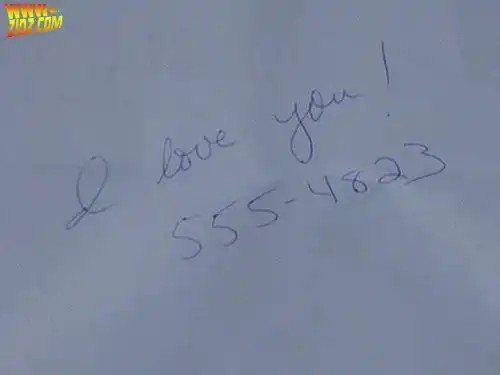 WWW.
ZIDZ.COM
I love you!
555-4823